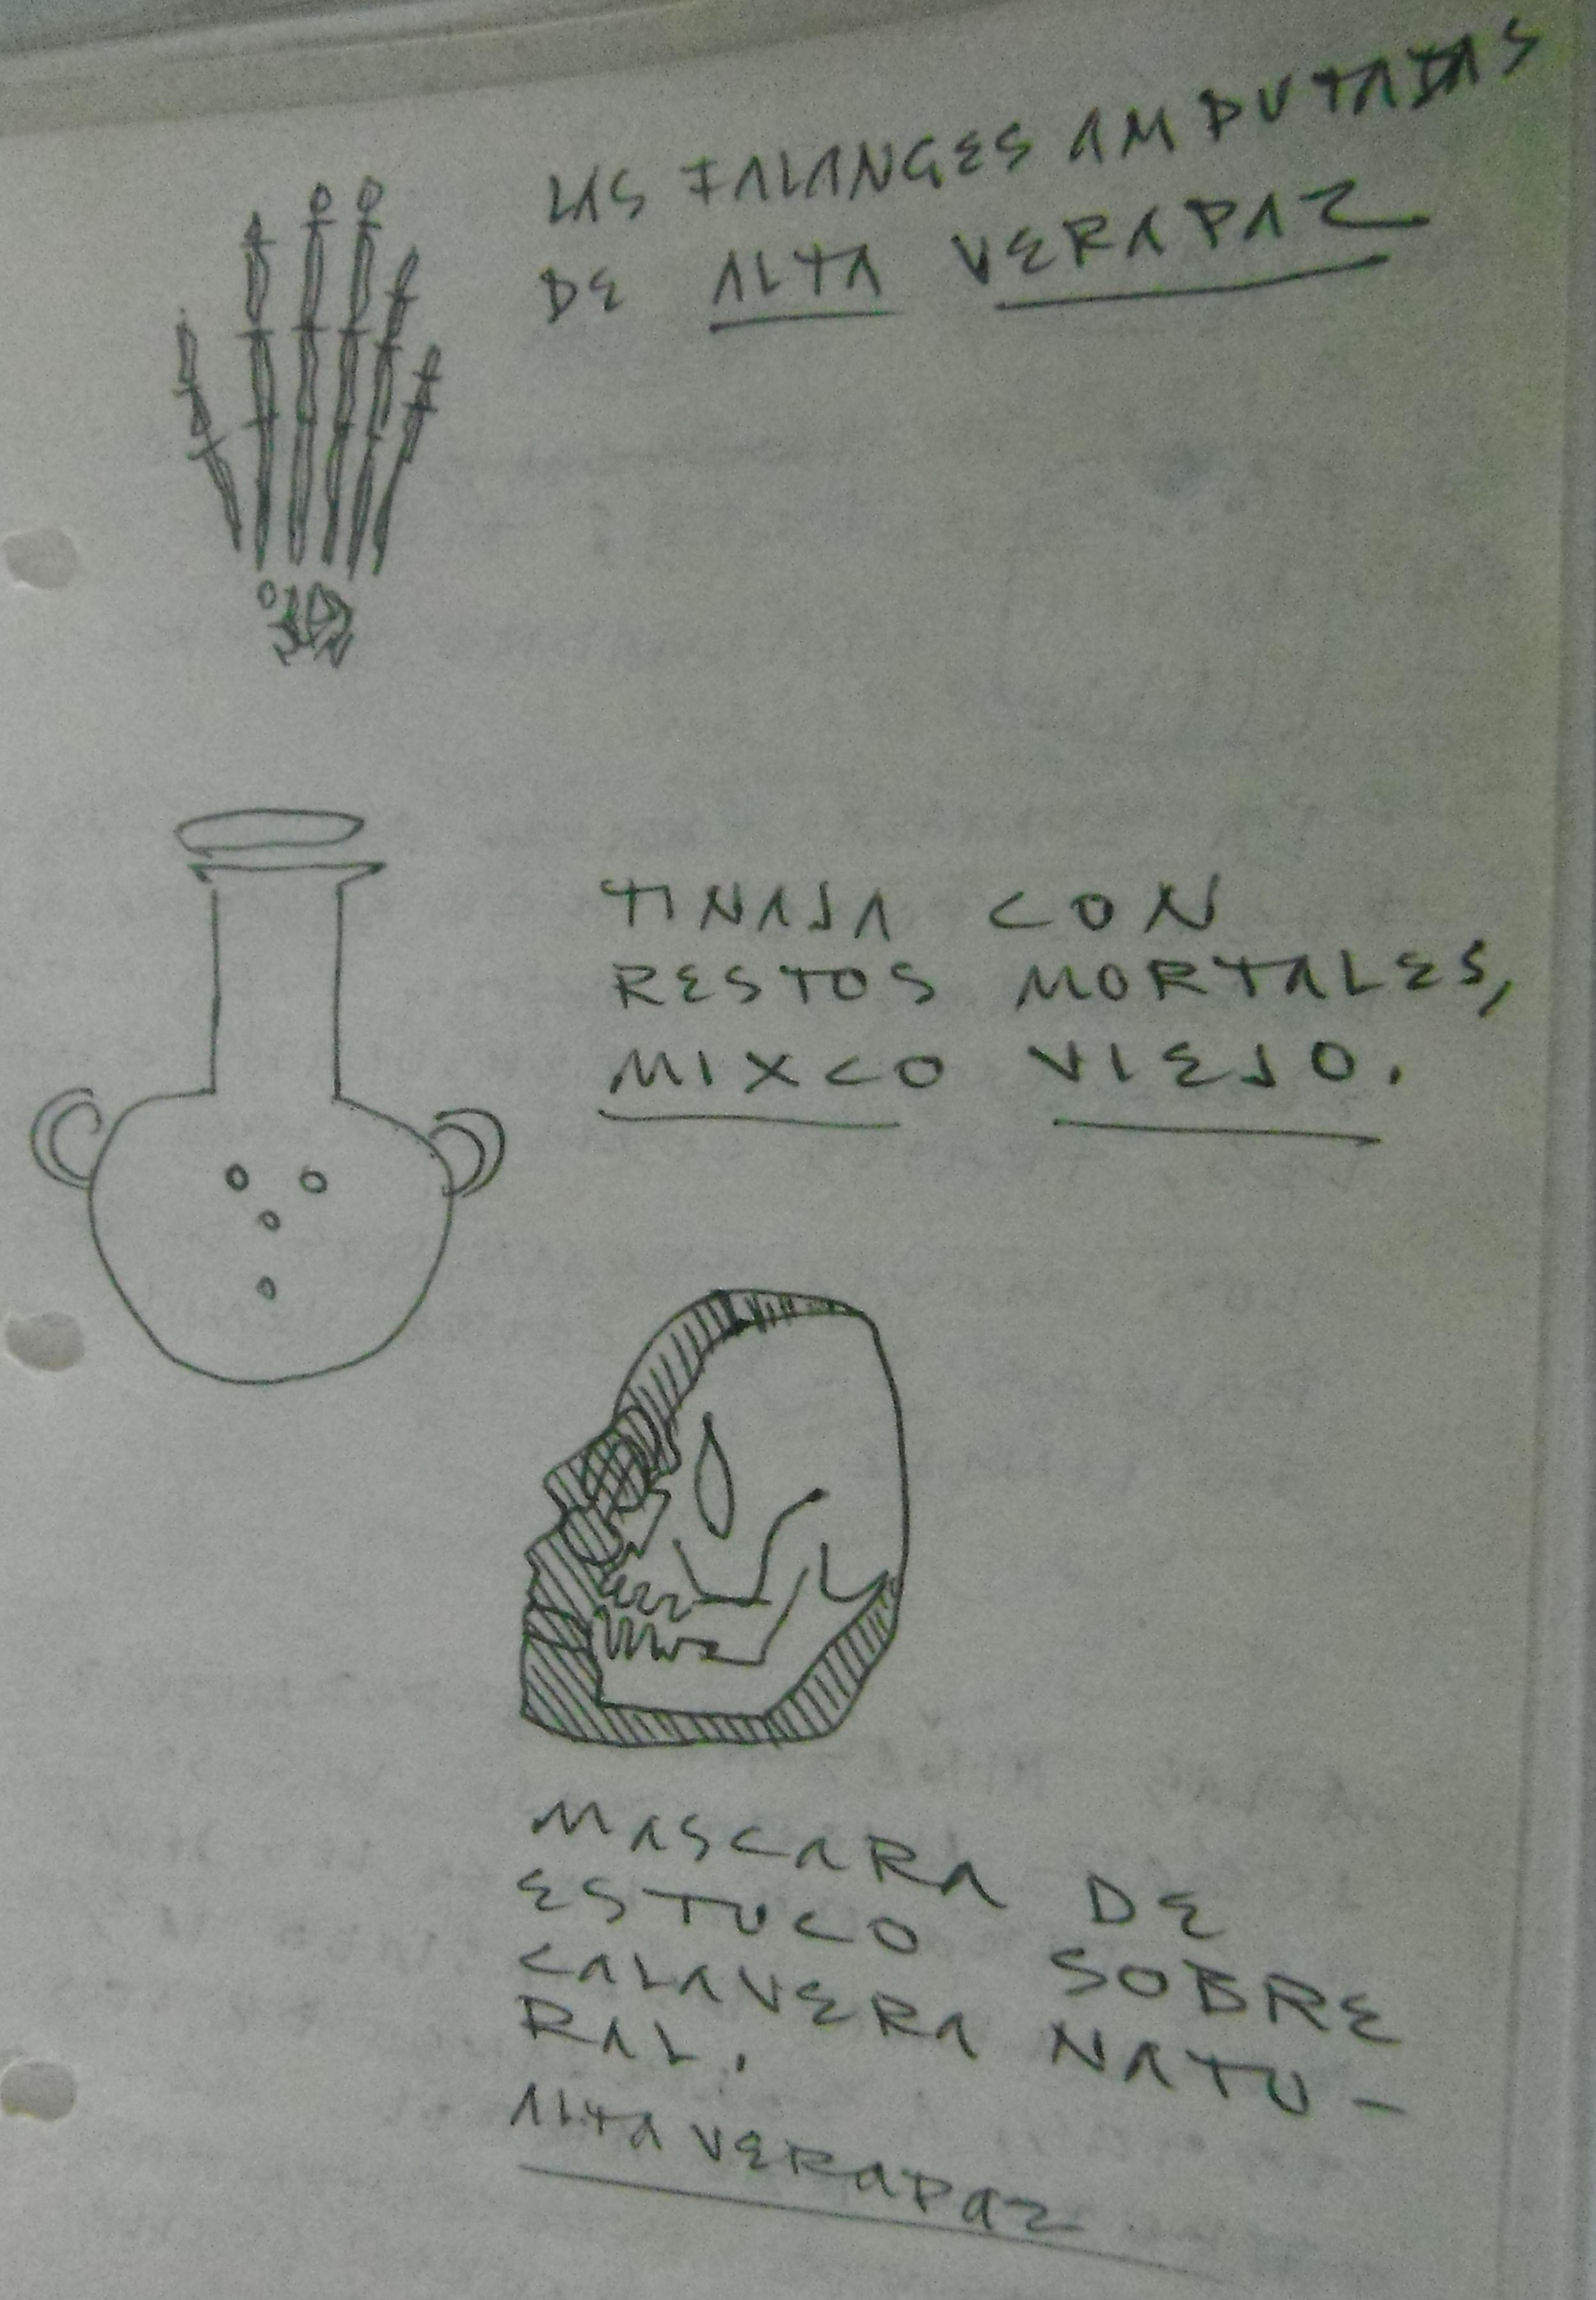 LAS FALANGES AMPUTADAS
DE ALTA VERAPAZ
TINAJA CON
RESTOS MORTALES,
MIXCO VIEJO.
MASCARA DE
ESTUCO SOBRE
CALAVERA NATU-
RAL.
ALTA VERAPAZ